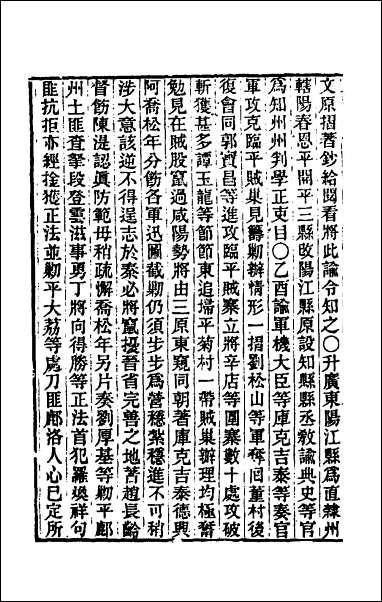 文原摺著鈔給閱看將此諭令知之○升廣東陽江縣爲直隸州
轄陽春恩平開平三縣改陽江縣原設知縣縣丞教諭典史等官
爲知州州判學正吏目○乙酉諭軍機大臣等庫克吉泰等奏官
軍攻克臨平賊巢見籌勦辦情形一摺劉松山等軍奪回董村後
復會同郭寶昌等進攻臨平賊寨立將辛店等圍寨數十處攻破
斬獲甚多譚玉龍等節節東追掃平菊村一帶賊巢辦理均極奮
勉見在賊股竄過咸陽勢將由三原東窺同朝著庫克吉泰德興
阿喬松年分飭各軍迅圖截勦仍須步步爲營穩紮穩進不可稍
涉大意該逆不得逞志於秦必將竄擾晉省完善之地著趙長齡
督飭陳湜認眞防範毋稍疏懈喬松年另片奏劉厚基等勦平鄜
州土匪查拏段登雲滋事勇丁將向得勝等正法首犯羅煥祥句
匪抗拒亦經捡獲正法並勦平大荔等處刀匪鄜洛人心已定所